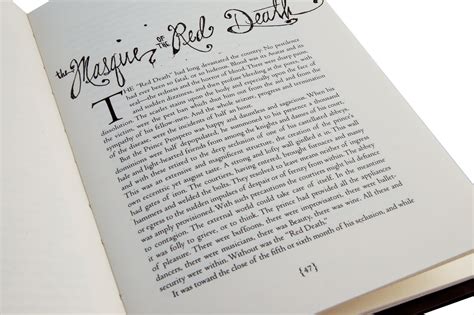 the Masque OF THE Red Death
THE "Red Death" had long devastated the country. No pestilence
had ever been so fatal, or so hideous. Blood was its Avatar and its
seal—the redness and the horror of blood. There were sharp pains,
and sudden dizziness, and then profuse bleeding at the pores, with
dissolution. The scarlet stains upon the body and especially upon the face of
the victim, were the pest ban which shut him out from the aid and from the
sympathy of his fellow-men. And the whole seizure, progress and termination
of the disease, were the incidents of half an hour.
But the Prince Prospero was happy and dauntless and sagacious. When his
dominions were half depopulated, he summoned to his presence a thousand hale
and light-hearted friends from among the knights and dames of his court,
and with these retired to the deep seclusion of one of his castellated abbeys.
This was an extensive and magnificent structure, the creation of the prince's
own eccentric yet august taste. A strong and lofty wall girdled it in. This wall
had gates of iron. The courtiers, having entered, brought furnaces and massy
hammers and welded the bolts. They resolved to leave means neither of ingress
or egress to the sudden impulses of despair or of frenzy from within. The abbey
was amply provisioned. With such precautions the courtiers might bid defiance
to contagion. The external world could take care of itself. In the meantime
it was folly to grieve, or to think. The prince had provided all the appliances
of pleasure. There were buffoons, there were improvisatori, there were ballet-
dancers, there were musicians, there was Beauty, there was wine. All these and
security were within. Without was the "Red Death."
It was toward the close of the fifth or sixth month of his seclusion, and while
{47}